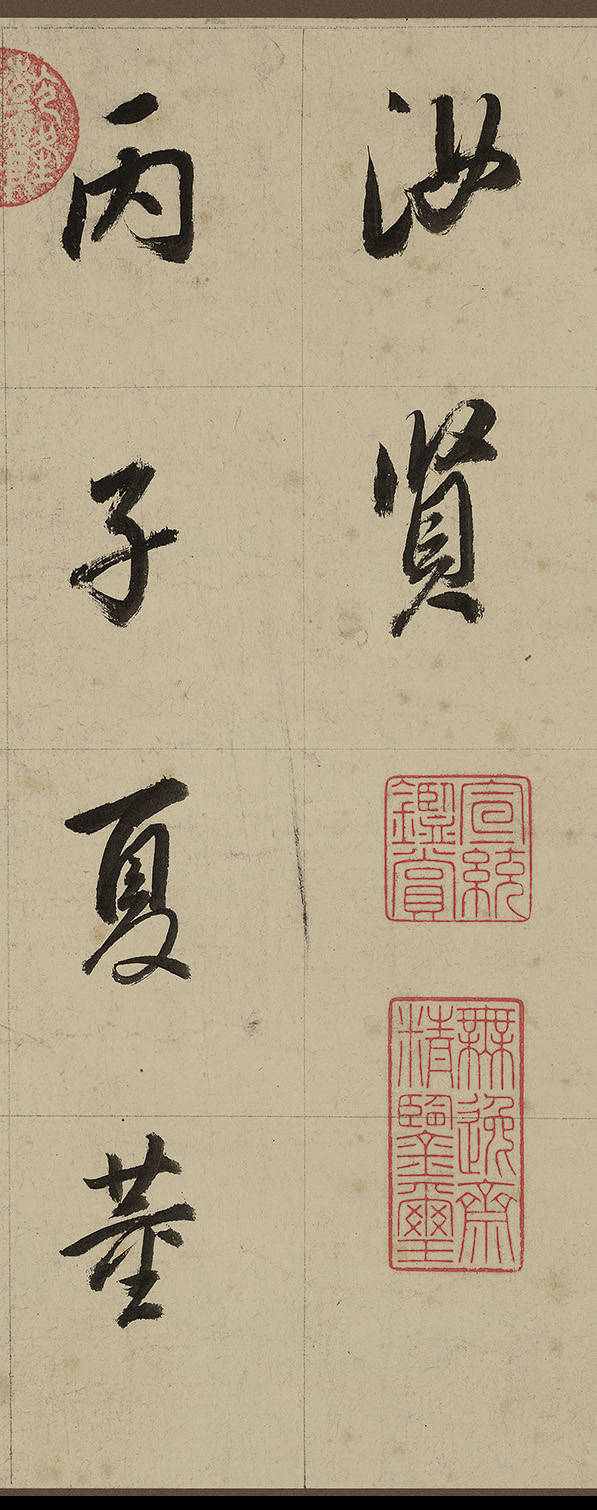 汝賢
宣統
鑑賞
無逸齋
精鑒璽
丙子夏董